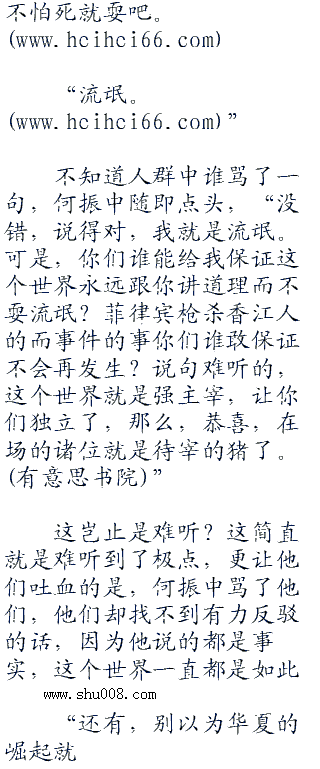 不怕死就耍吧。
(www.hcihci66.com)
“流氓。
(www.hcihci66.com)”
不知道人群中谁骂了一
句，何振中随即点头，“没
错，说得对，我就是流氓。
可是，你们谁能给我保证这
个世界永远跟你讲道理而不
耍流氓？菲律宾枪杀香江人
的而事件的事你们谁政保证
不会再发生？说句难听的，
这个世界就是强主宰，让你
们独立了，那么，恭喜，在
场的诸位就是待宰的猪了。
(有意思书院)”
这岂止是难听？这简直
就是难听到了极点，更让他
们吐血的是，何振中骂了他
们，他们却找不到有力反驳
的话，因为他说的都是事
实，这个世界一直都是如此
www.shu008.com
“还有，别以为华夏的
崛起就